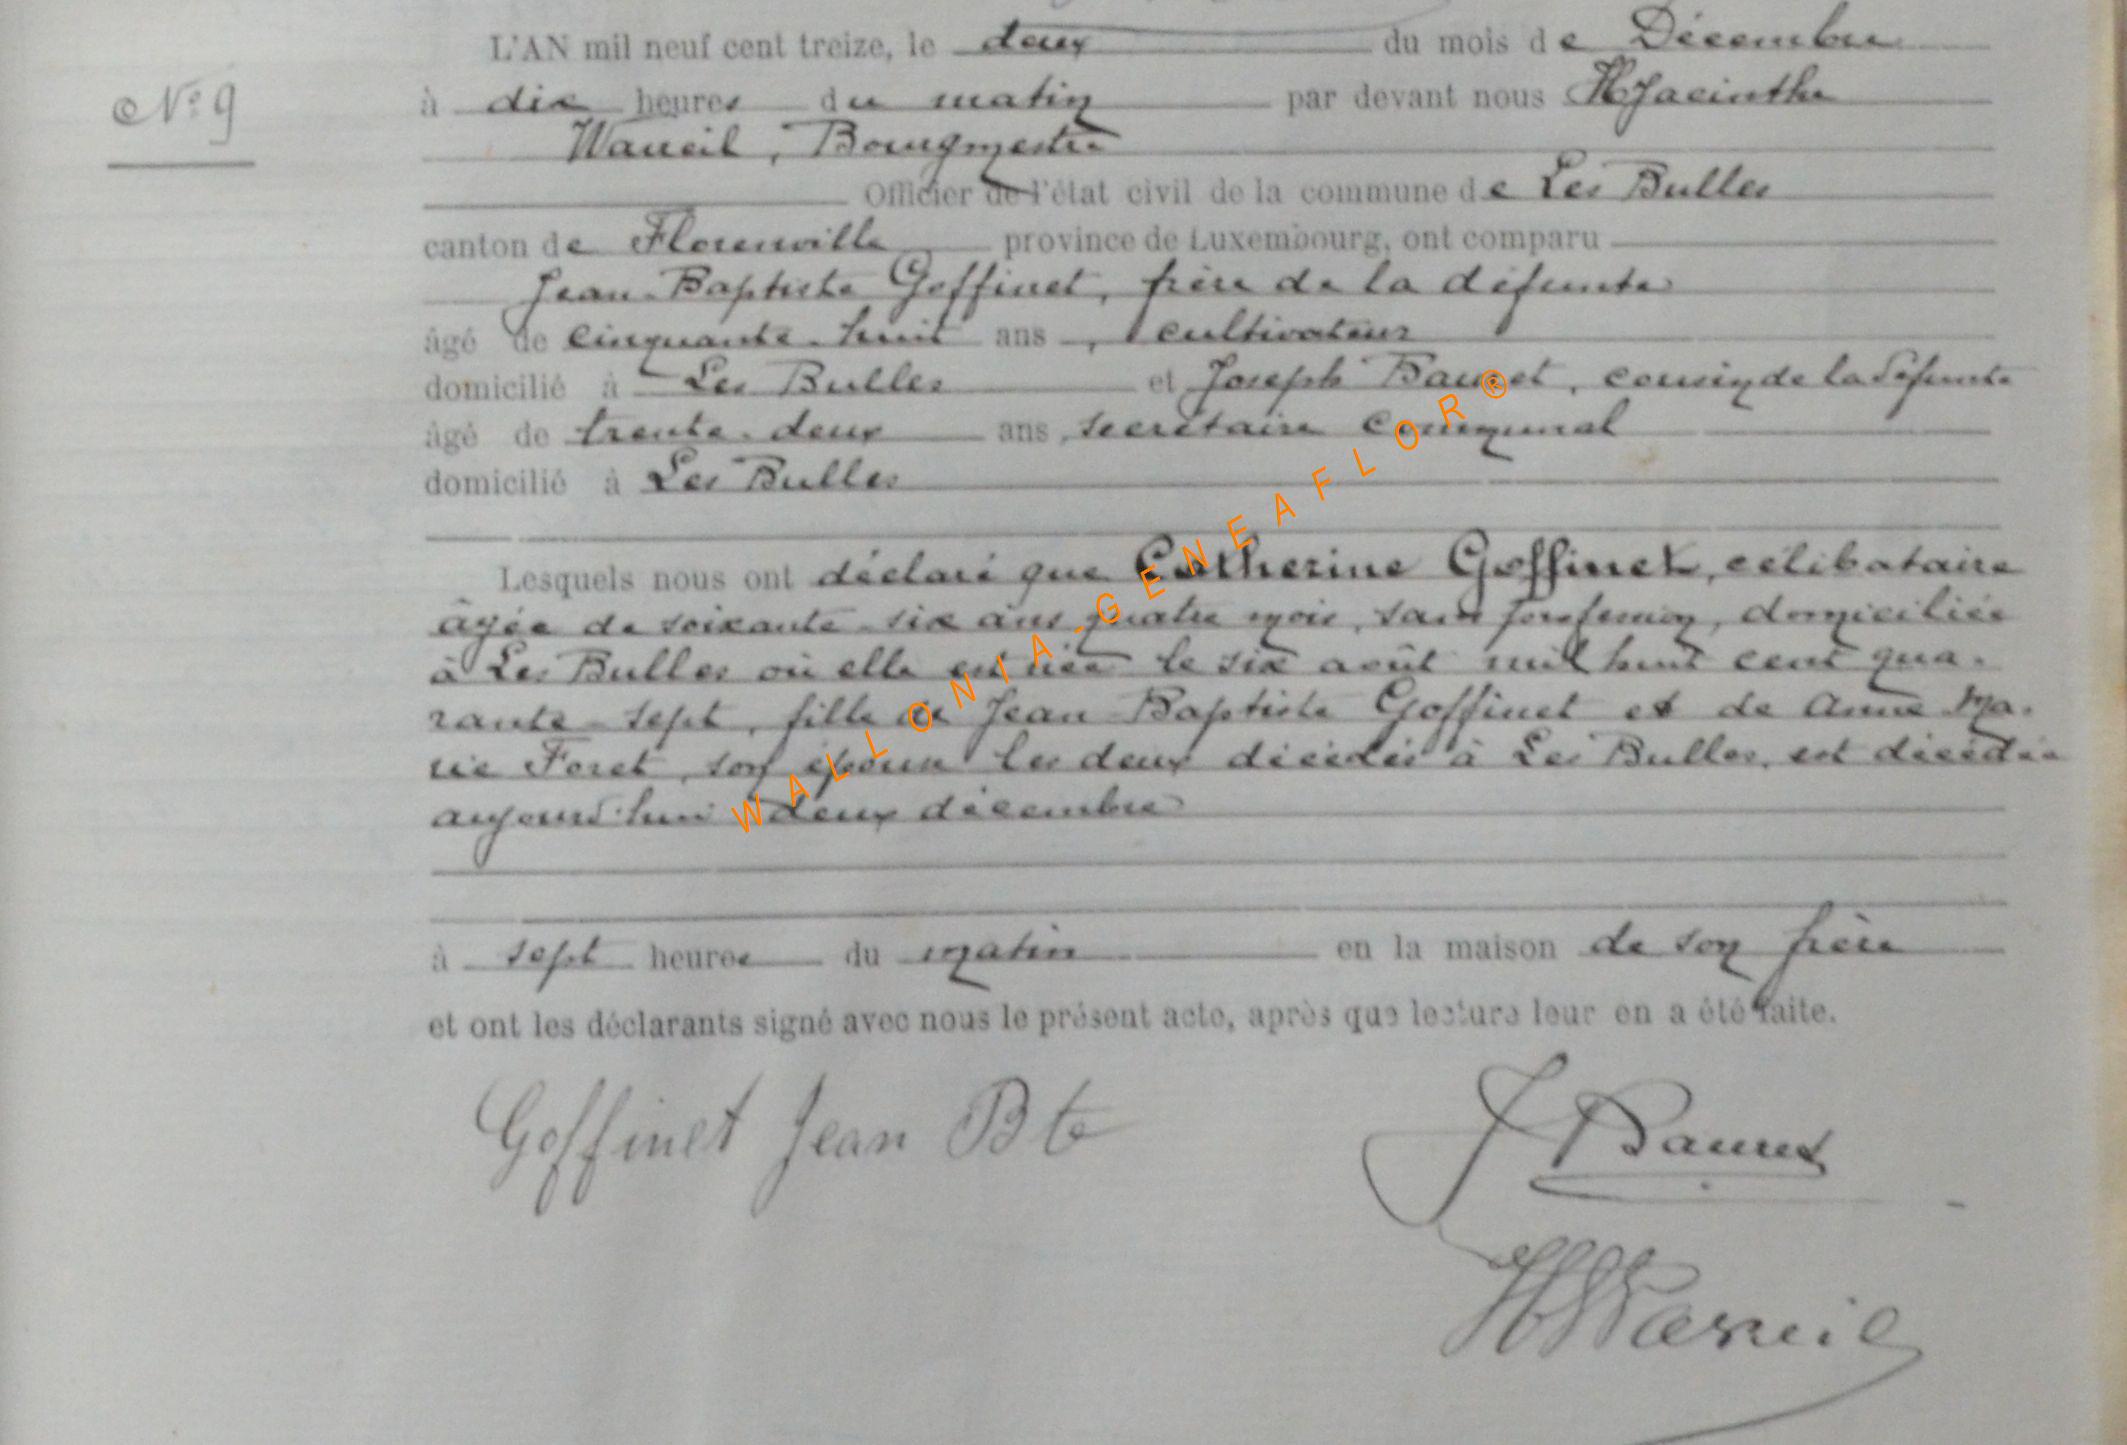 L'AN mil neuf cent treize, le deux du mois de Décembre
N° 9
à dix heures du matin par devant nous Hyacinthe
Waneil, Bourgmestre
Officier de l'état civil de la commune de Les Bulles
canton de Florenville province de Luxembourg, ont comparu
Jean-Baptiste Goffinet, frère de la défunte
âgé de cinquante-huit ans, cultivateur
domicilié à Les Bulles et Joseph, cousin de la défunte
âgé de trente-deux ans, secrétaire communal
domicilié à Les Bulles
Lesquels nous ont déclaré que Catherine Goffinet, célibataire
âgée de soixante-six ans quatre mois, sans profession, domiciliée
à Les Bulles où elle est née le six août mil huit cent qua-
rante-sept, fille de Jean Baptiste Goffinet et de Anne Ma-
rie Foret, son épouse les deux décédés à Les Bulles, est décédée
aujourd'hui deux décembre
à sept heures du matin en la maison de son frère
et ont les déclarants signé avec nous le présent acte, après que lecture leur en a été faite.
Goffinet Jean Bte
WALLONIA-GENEAFLOR®